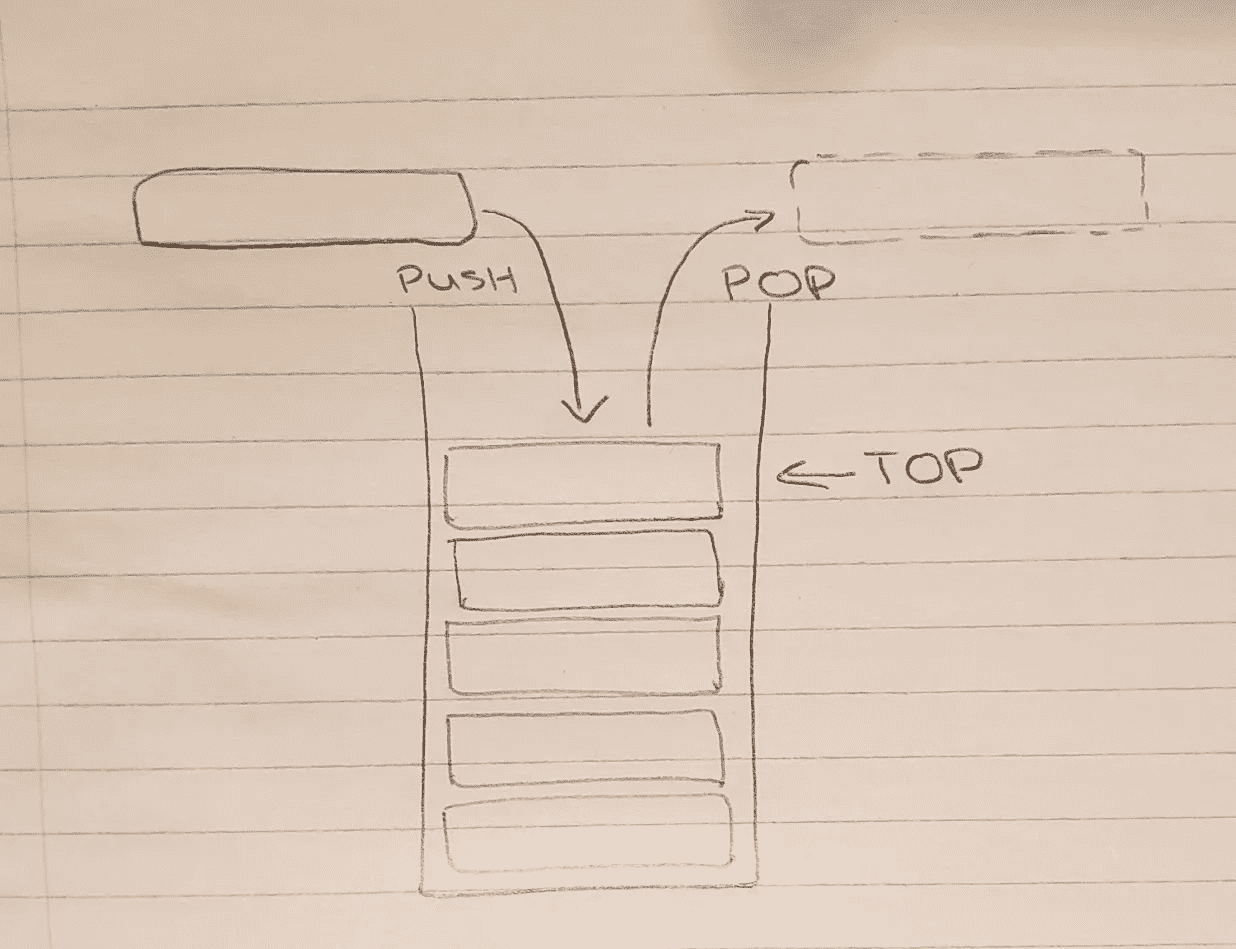 PUSH
POP
TOP